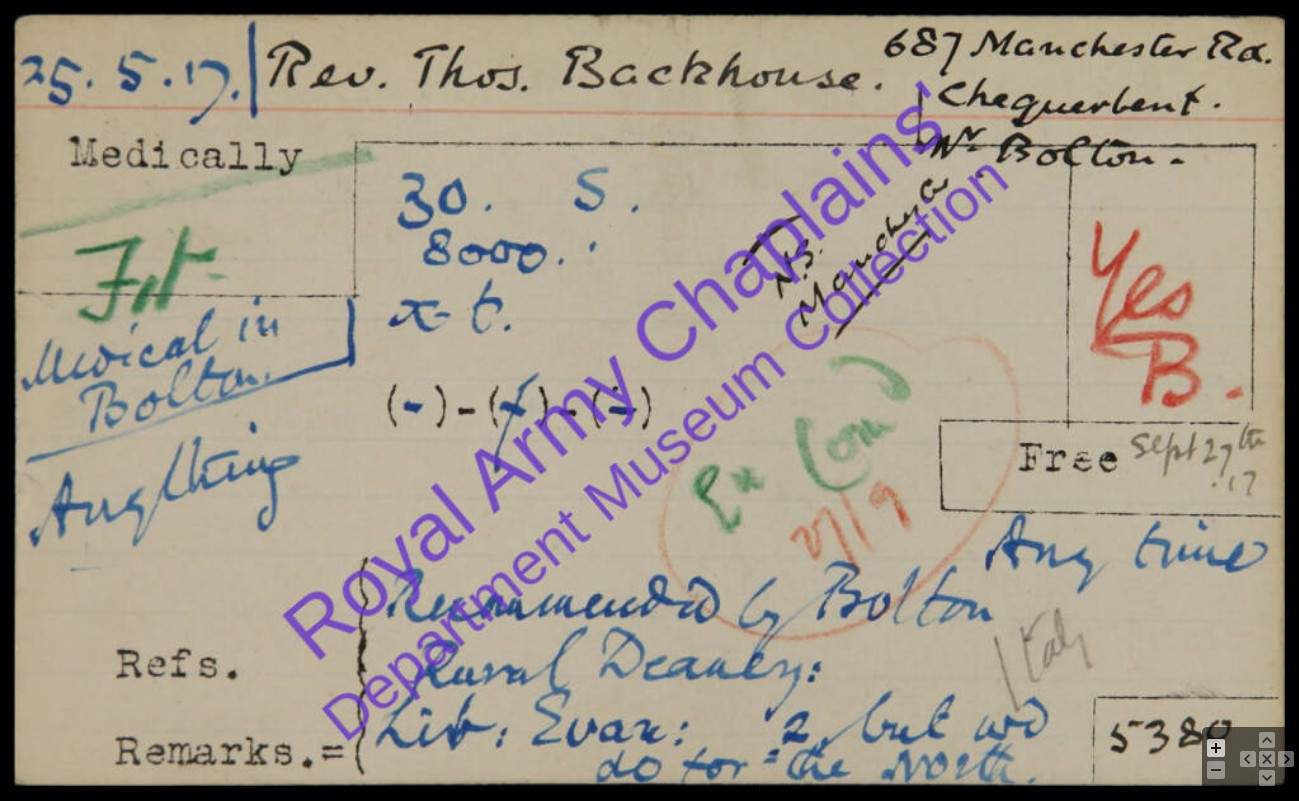 25.5.17. Rev. Thos. Backhouse. 687 Manchester Rd.
Chequerbent.
Nr Bolton.
Medically
Fit
30. S.
8000.
x t.
N.B.
Manchester
Yes
B.
Medical in
Bolton.
(-)-(/)-(-)
Anything
Ex Com
27/9
Free Sept 27th .17
Any time
Recommended by Bolton
Rural Deanery:
Italy
Refs.
Remarks.=
Lib: Evan: 2, but wd
do for the North.
5380
Royal Army Chaplains'
Department Museum Collection